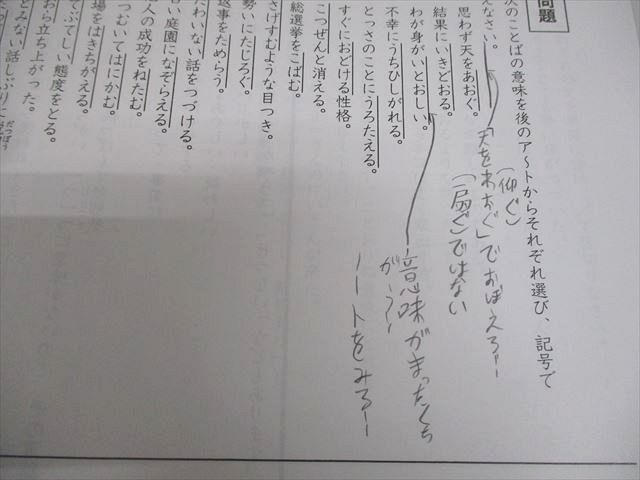 問題
次のことばの意味を後のア〜トからそれぞれ選び、記号で
えなさい。
思わず天をあおぐ。
(仰ぐ)
「天をあおぐ」でおぼえろー
(扇ぐ)ではない
結果にいきどおる。
わが身がいとおしい。
意味がまったくち
がうー
ノートをみろー
不幸にうちひしがれる。
とっさのことにうろたえる。
すぐにおどける性格。
こつぜんと消える。
総選挙をこばむ。
さげすむような目つき。
勢いにたじろぐ。
返事をためらう。
たわいない話をつづける。
い庭園になぞらえる。
人の成功をねたむ。
つむいてはにかむ。
場をはきちがえる。
てぶてしい態度をとる。
おら立ち上がった。
とみない話しぶりに
だつぼう